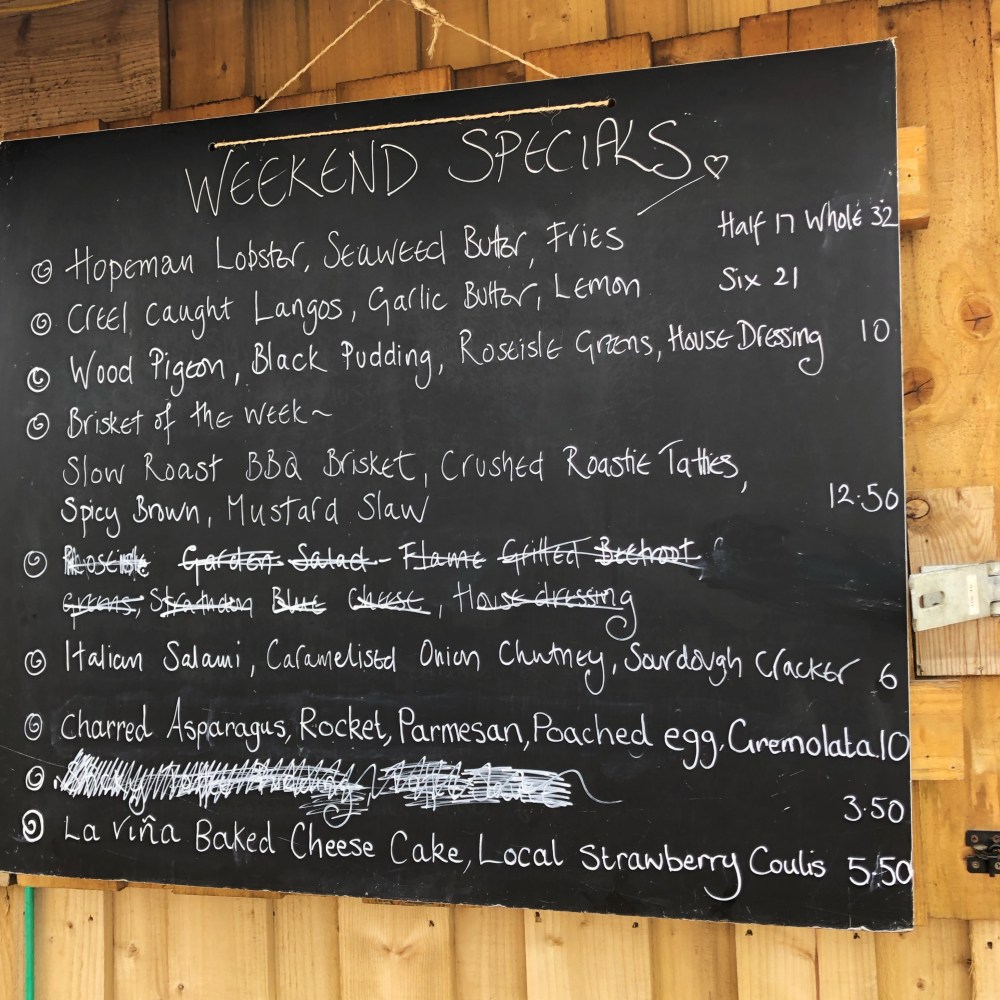 WEEKEND SPECIALS
Hopeman Lobster, Seaweed Butter, Fries Half 17 Whole 32
Creel Caught Langos, Garlic Butter, Lemon Six 21
Wood Pigeon, Black Pudding, Roseisle Greens, House Dressing 10
Brisket of the Week~
Slow Roast BBQ Brisket, Crushed Roastie Tatties,
Spicy Brown, Mustard Slaw 12.50
Roseisle Garden Salad - Flame Grilled Beetroot,
greens, Strathdon Blue Cheese, House dressing
Italian Salami, Caramelised Onion Chutney, Sourdough Cracker 6
Charred Asparagus, Rocket, Parmesan, Poached egg, Gremolata 10
3.50
La Viña Baked Cheese Cake, Local Strawberry Coulis 5.50